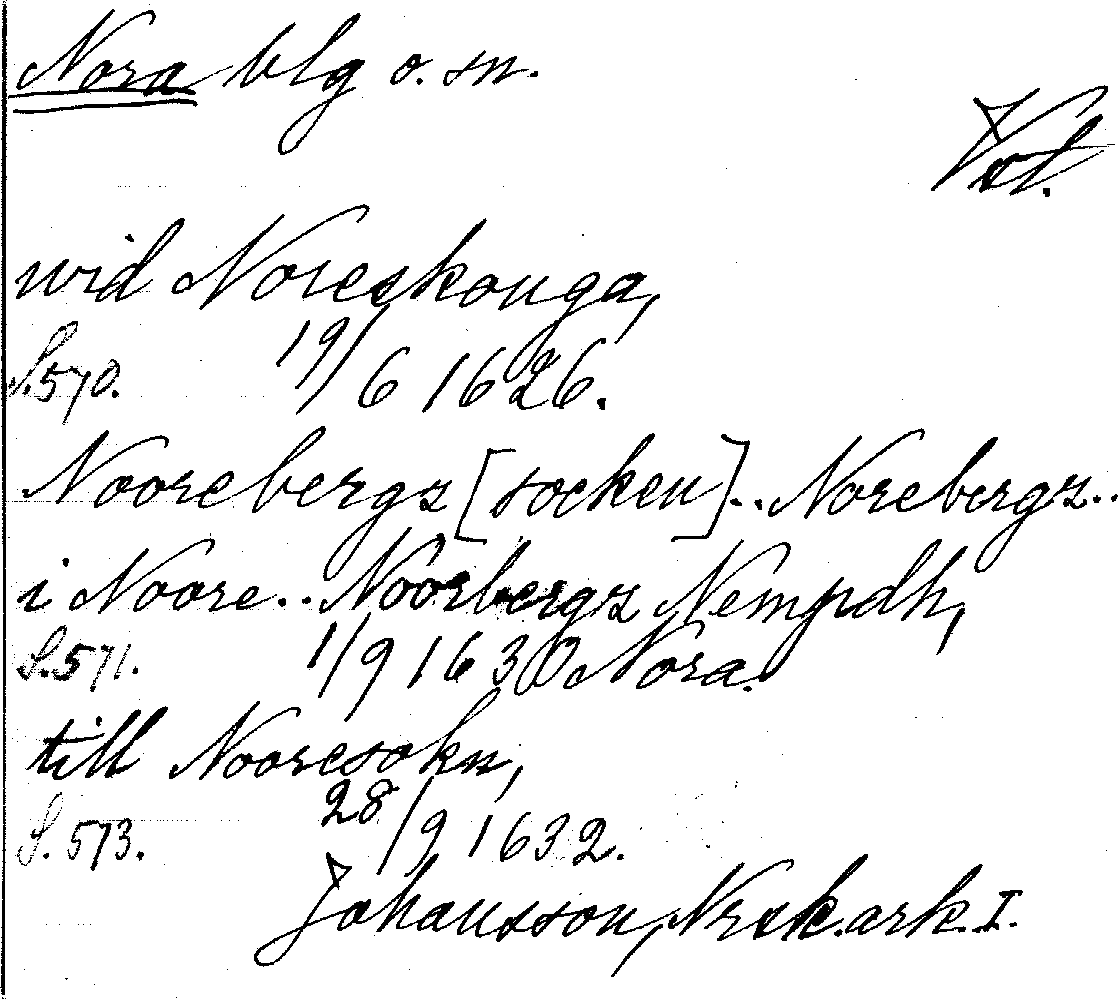 Nora blg o. sn.
Vstl.
wid Noreskouga,
S.570. 19/6 1626.
Noorebergz [socken]..Norebergz..
i Noore..Noorbergz Nempdh,
S.571. 1/9 1630 Nora.
till Nooresokn,
S.573. 28/9 1632.
Johansson, Nrsk.ark. I.